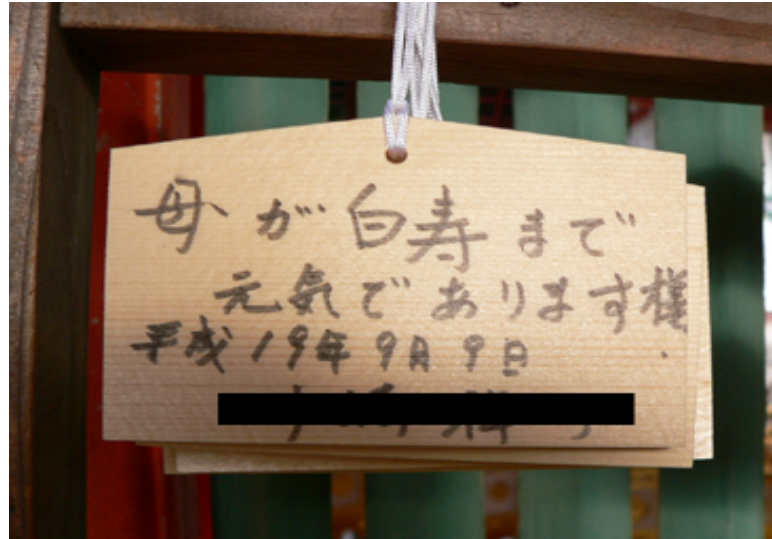 母が白寿まで
元気であります様
平成19年9月9日